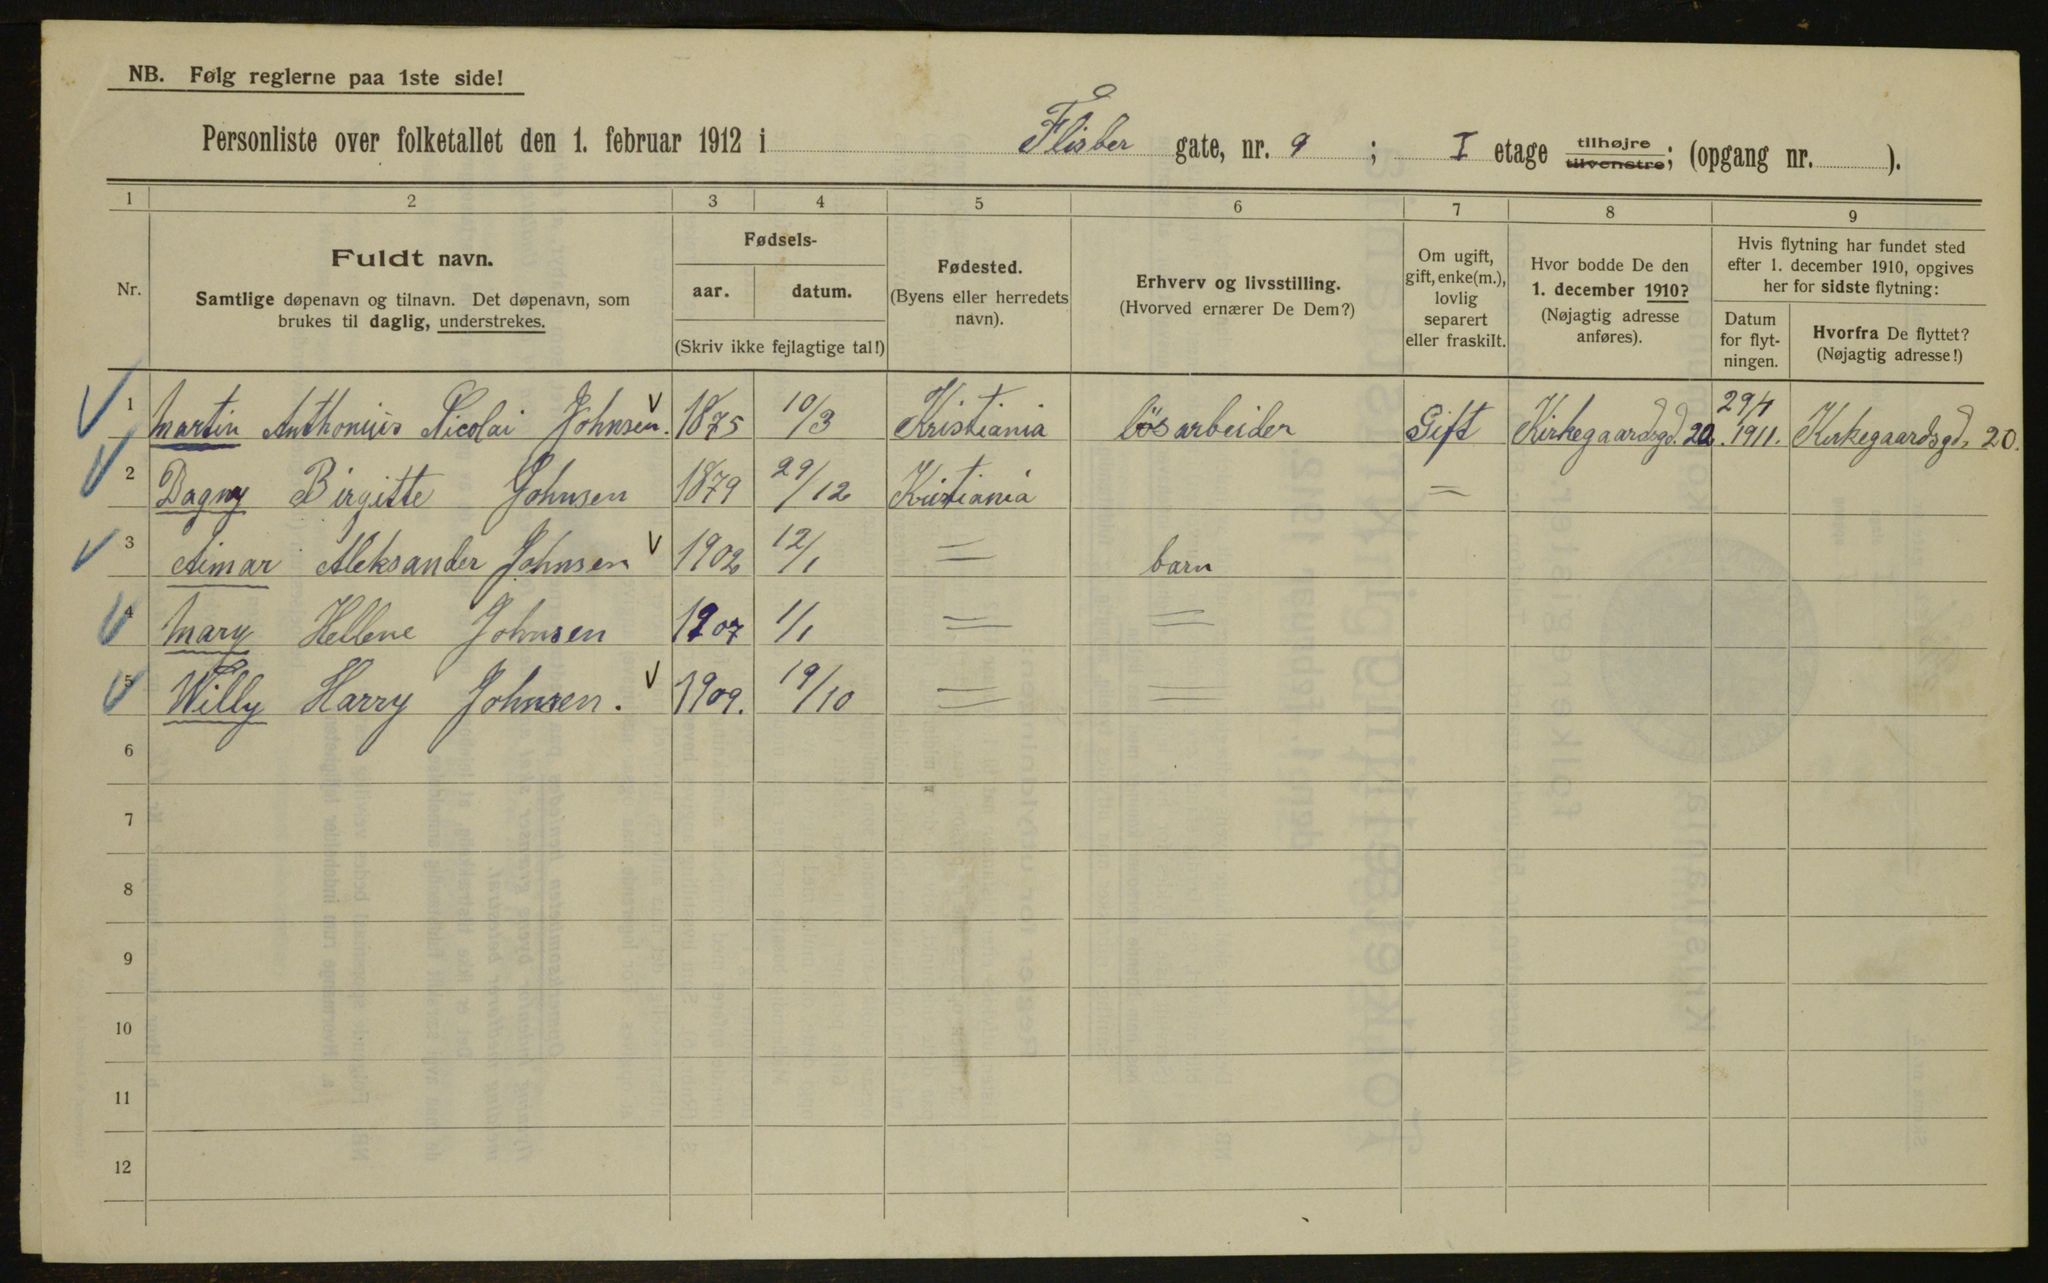 NB. Følg reglerne paa 1ste side!
Personliste over folketallet den 1. februar 1912 i Flisber gate, nr. 9 ; I etage tilhøjre tilvenstre; (opgang nr. ).
1 2 3 4 5 6 7 8 9
Nr.
Fuldt navn.
Samtlige døpenavn og tilnavn. Det døpenavn, som
brukes til daglig, understrekes.
Fødsels-
aar. datum.
(Skriv ikke fejlagtige tal!)
Fødested.
(Byens eller herredets
navn).
Erhverv og livsstilling.
(Hvorved ernærer De Dem?)
Om ugift,
gift, enke(m.),
lovlig
separert
eller fraskilt.
Hvor bodde De den
1. december 1910?
(Nøjagtig adresse
anføres).
Hvis flytning har fundet sted
efter 1. december 1910, opgives
her for sidste flytning:
Datum
for flyt-
ningen.
Hvorfra De flyttet?
(Nøjagtig adresse!)
1 Martin Anthonius Nicolai Johnsen. 1875 10/3 Kristiania løsarbeider Gift Kirkegaardsgd. 20 29/4 1911. Kirkegaardsgd. 20.
2 Dagny Birgitte Johnsen 1879 29/12 Kristiania =
3 Aimar Aleksander Johnsen 1902 12/1 = barn
4 Mary Hellene Johnsen 1907 1/1 = =
5 Willy Harry Johnsen. 1909. 19/10 = =
6
7
8
9
10
11
12